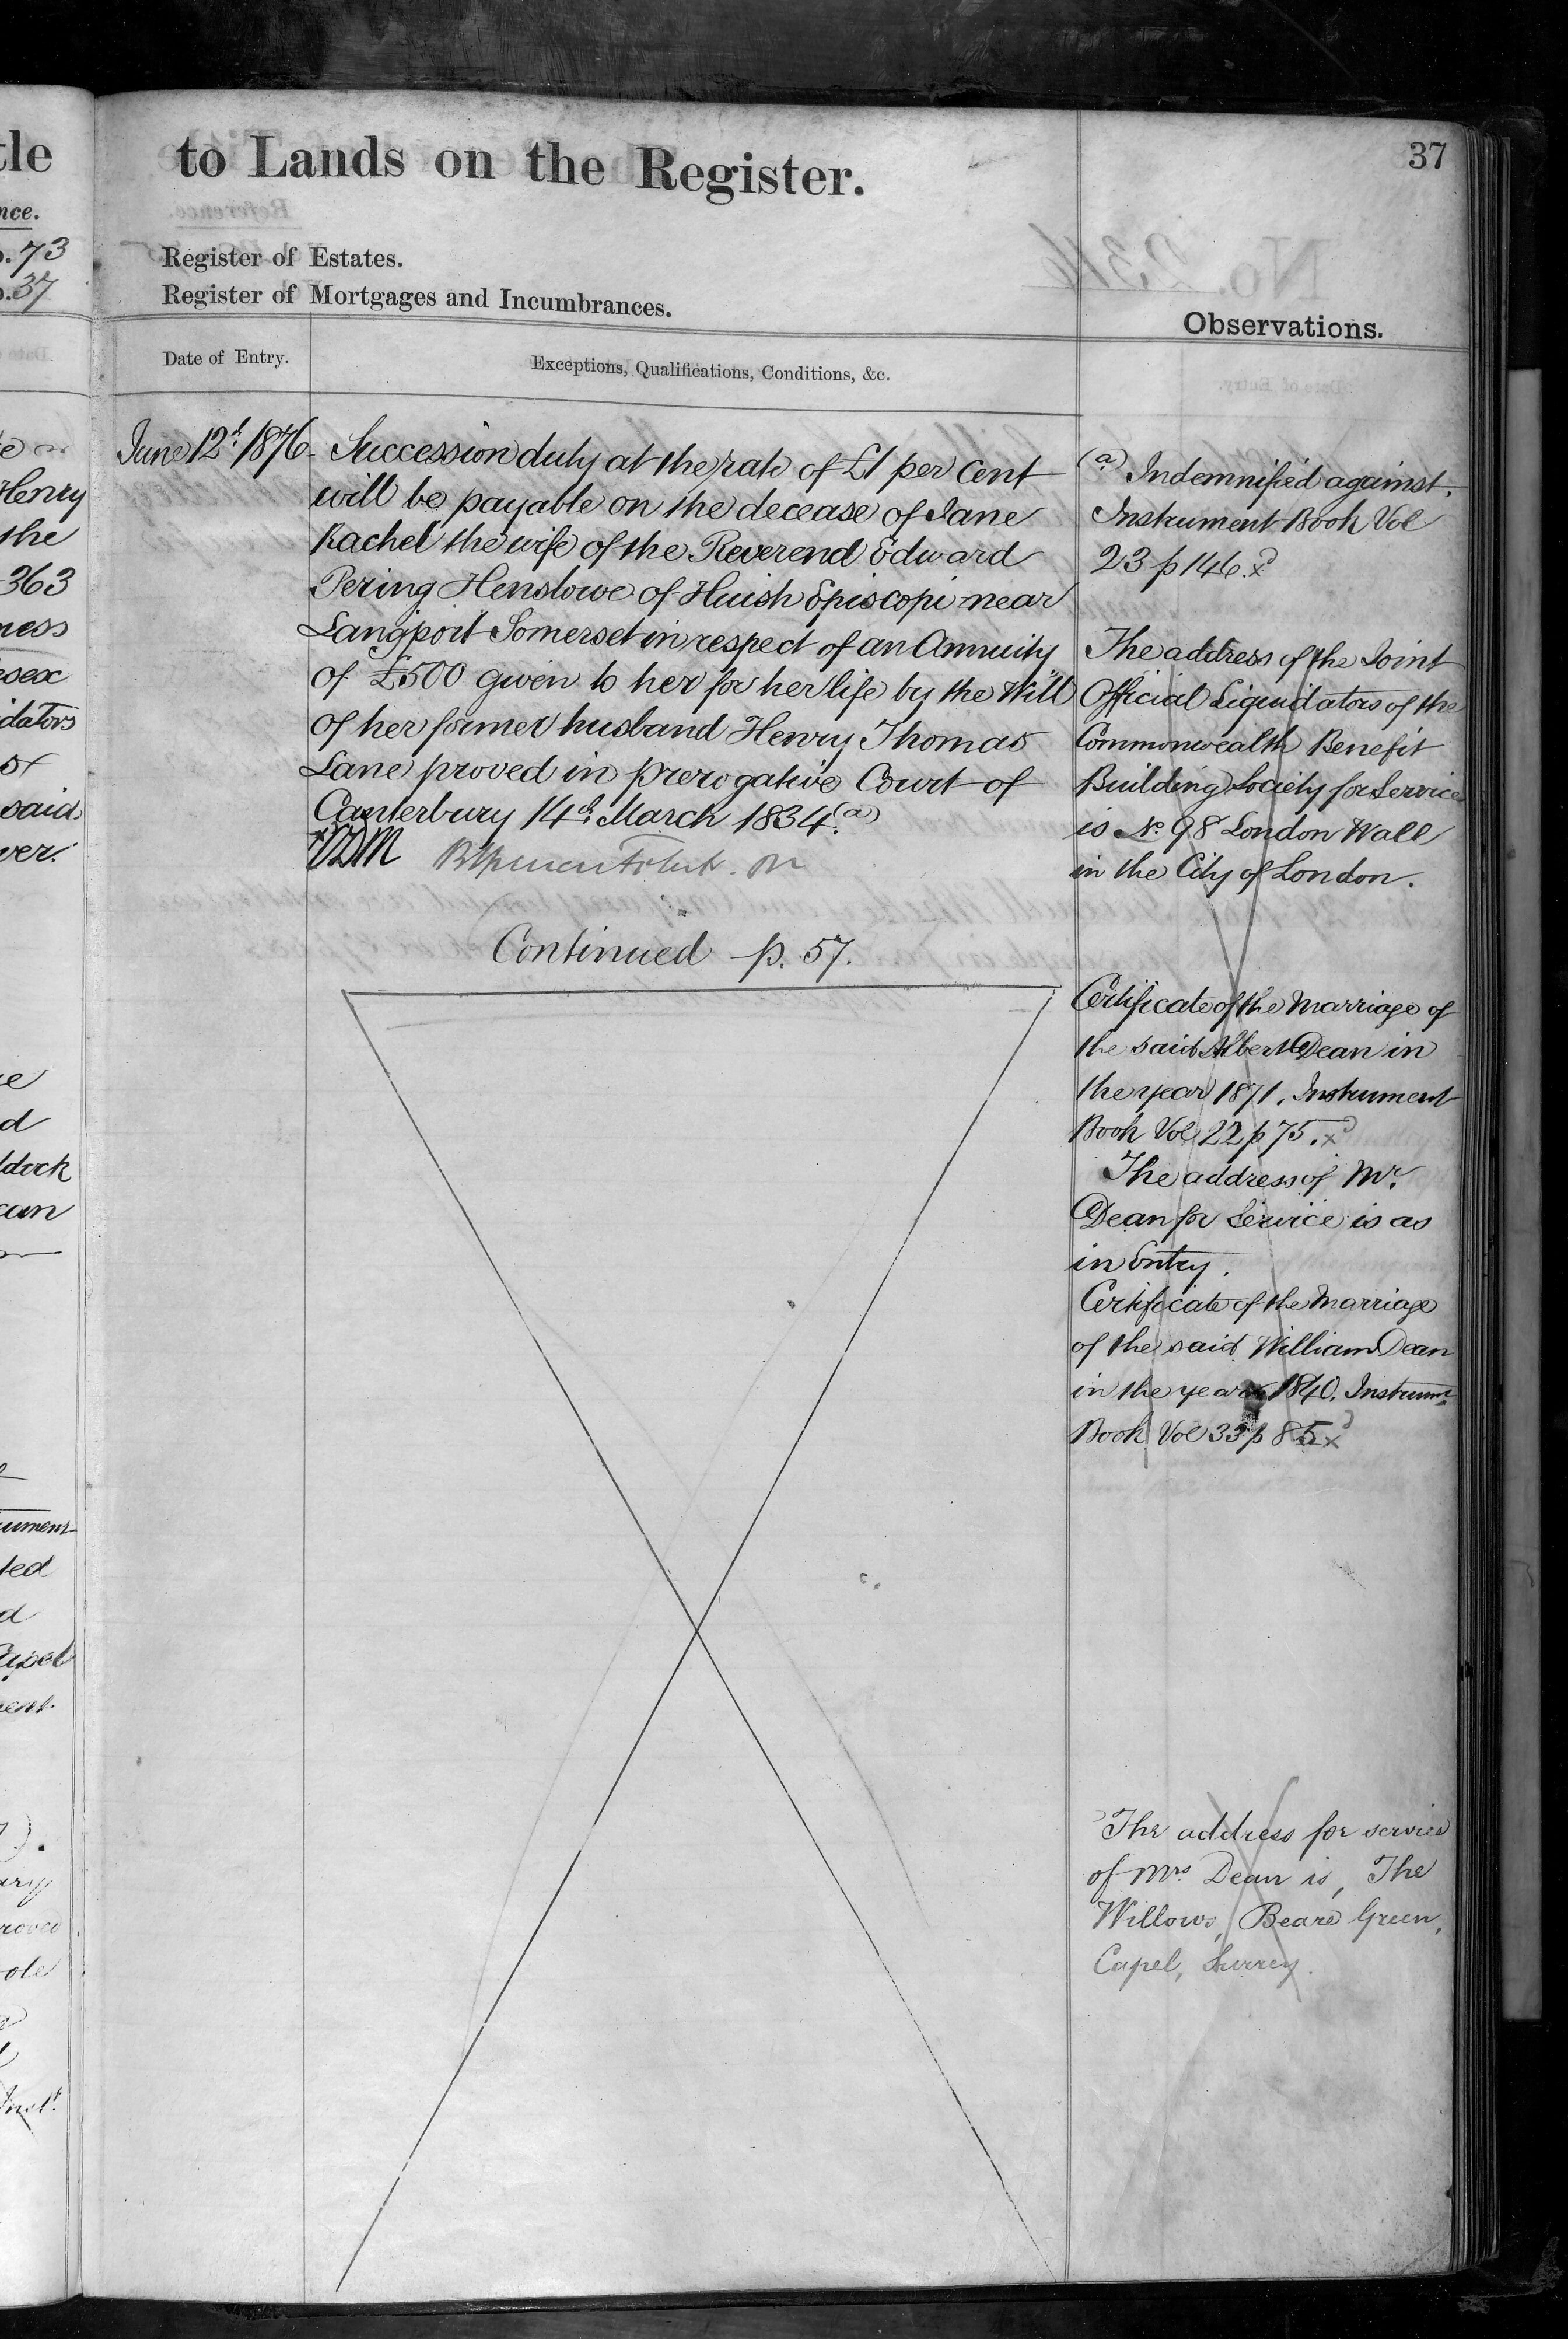 tle
to Lands on the Register.
37
nce.
. 73
. 37
Register of Estates.
Register of Mortgages and Incumbrances.
No. 2314
Observations.
Date of Entry.
Exceptions, Qualifications, Conditions, &c.
June 12th 1876
Succession duty at the rate of £1 per Cent
will be payable on the decease of Jane
Rachel the wife of the Reverend Edward
Pering Henslowe of Huish Episcopi near
Langport Somerset in respect of an Annuity
of £500 given to her for her life by the Will
of her former husband Henry Thomas
Lane proved in prerogative Court of
Canterbury 14th March 1834. (a)
Continued p. 57.
(a) Indemnified against.
Instrument Book Vol
23 p 146. xd
The address of the Joint
Official Liquidators of the
Commonwealth Benefit
Building Society for Service
is No 98 London Wall
in the City of London.
Certificate of the Marriage of
the said Albert Dean in
the year 1871. Instrument
Book Vol 22 p 75. xd
The address of Mr.
Dean for Service is as
in Entry.
Certificate of the Marriage
of the said William Dean
in the year 1840. Instrumt
Book Vol 33 p 85 xd
The address for service
of Mrs Dean is, The
Willows, Beare Green,
Capel, Surrey.
Henry
the
363
ness
esex
idators
said
ver.
ddock
ument
ted